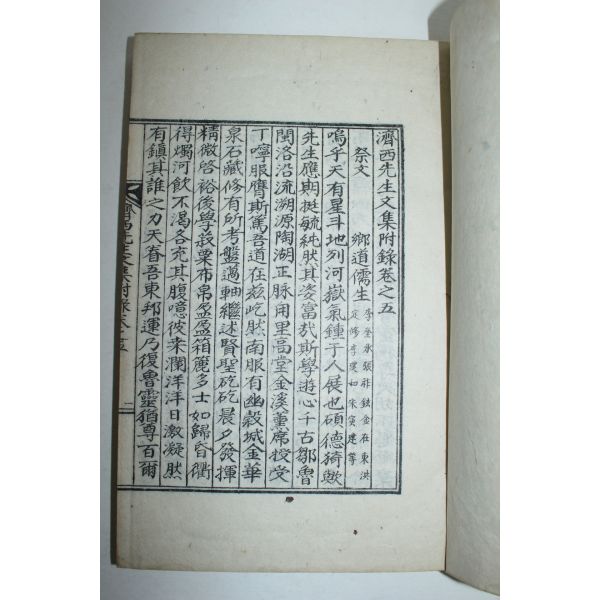 濟西先生文集附錄卷之五
祭文 鄉道儒生 李奎永張非鉉金在東洪
定修李處如朱寅建等
嗚乎天有星斗地列河嶽氣鍾于人展也碩德猗歟
先生應期挺毓純肰其姿富㢤斯學遊心千古鄒魯
閩洛沿流溯源陶湖正脉用里高堂金溪薰席授受
丁嚀服膺斯篤吾道在玆屹然南服有幽糓城金華
泉石藏修有所考盤薖軸繼述賢聖矻矻晨夕發揮
精微啓裕後學菽粟布帛盈盈箱麓多士如歸昏衢
得燭河飮不渴各充其腹噫彼来瀾洋洋日激凝肰
有鎭其誰之力天眷吾東邦運乃復魯靈猶尊百爾
濟西先生文集附錄卷之五 一